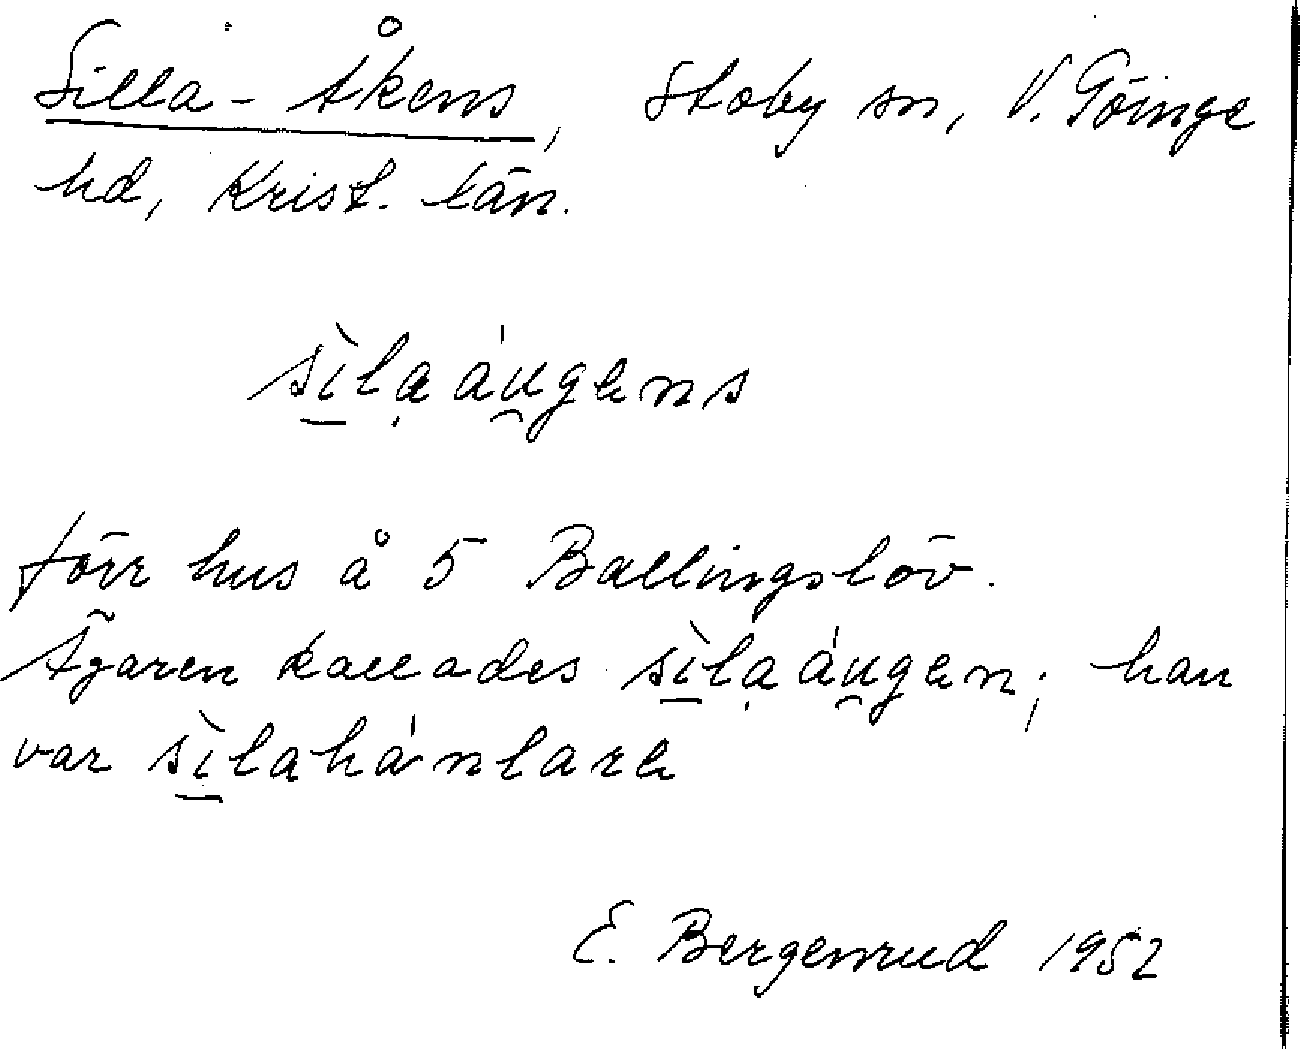 Silla-Åkens, Stoby sn, V. Göinge
hd, Krist. län.
sìlạáu̯gens
förr hus å 5 Ballingslöv.
Ägaren kallades sìlạáu̯gen; han
var sìlahánlare
E. Bergenrud 1952